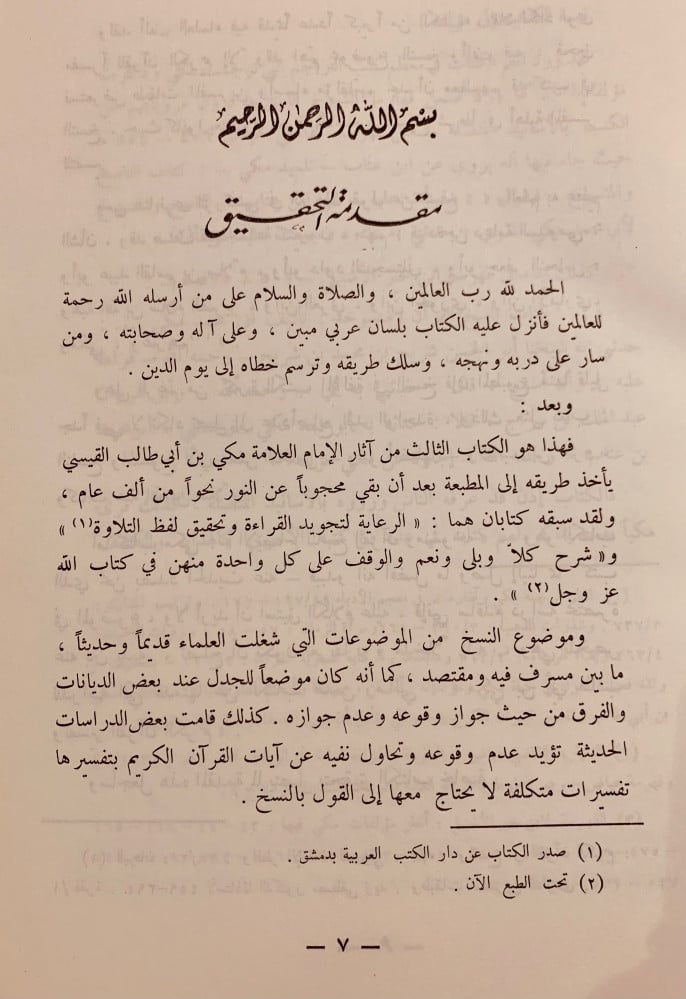 بسم الله الرحمن الرحيم
مقدمة التحقيق
الحمد لله رب العالمين ، والصلاة والسلام على من أرسله الله رحمة
للعالمين فأنزل عليه الكتاب بلسان عربي مبين ، وعلى آله وصحابته ، ومن
سار على دربه ونهجه ، وسلك طريقه وترسم خطاه إلى يوم الدين .
وبعد :
فهذا هو الكتاب الثالث من آثار الإمام العلامة مكي بن أبي طالب القيسي
يأخذ طريقه إلى المطبعة بعد أن بقي محجوباً عن النور نحواً من ألف عام ،
ولقد سبقه كتابان هما : « الرعاية لتجويد القراءة وتحقيق لفظ التلاوة(١) »
و« شرح كلاّ وبلى ونعم والوقف على كل واحدة منهن في كتاب الله
عز وجل(٢) » .
وموضوع النسخ من الموضوعات التي شغلت العلماء قديماً وحديثاً ،
ما بين مسرف فيه ومقتصد ، كما أنه كان موضعاً للجدل عند بعض الديانات
والفرق من حيث جواز وقوعه وعدم جوازه . كذلك قامت بعض الدراسات
الحديثة تؤيد عدم وقوعه وتحاول نفيه عن آيات القرآن الكريم بتفسيرها
تفسيرات متكلفة لا يحتاج معها إلى القول بالنسخ .
(١) صدر الكتاب عن دار الكتب العربية بدمشق .
(٢) تحت الطبع الآن .
— ٧ —